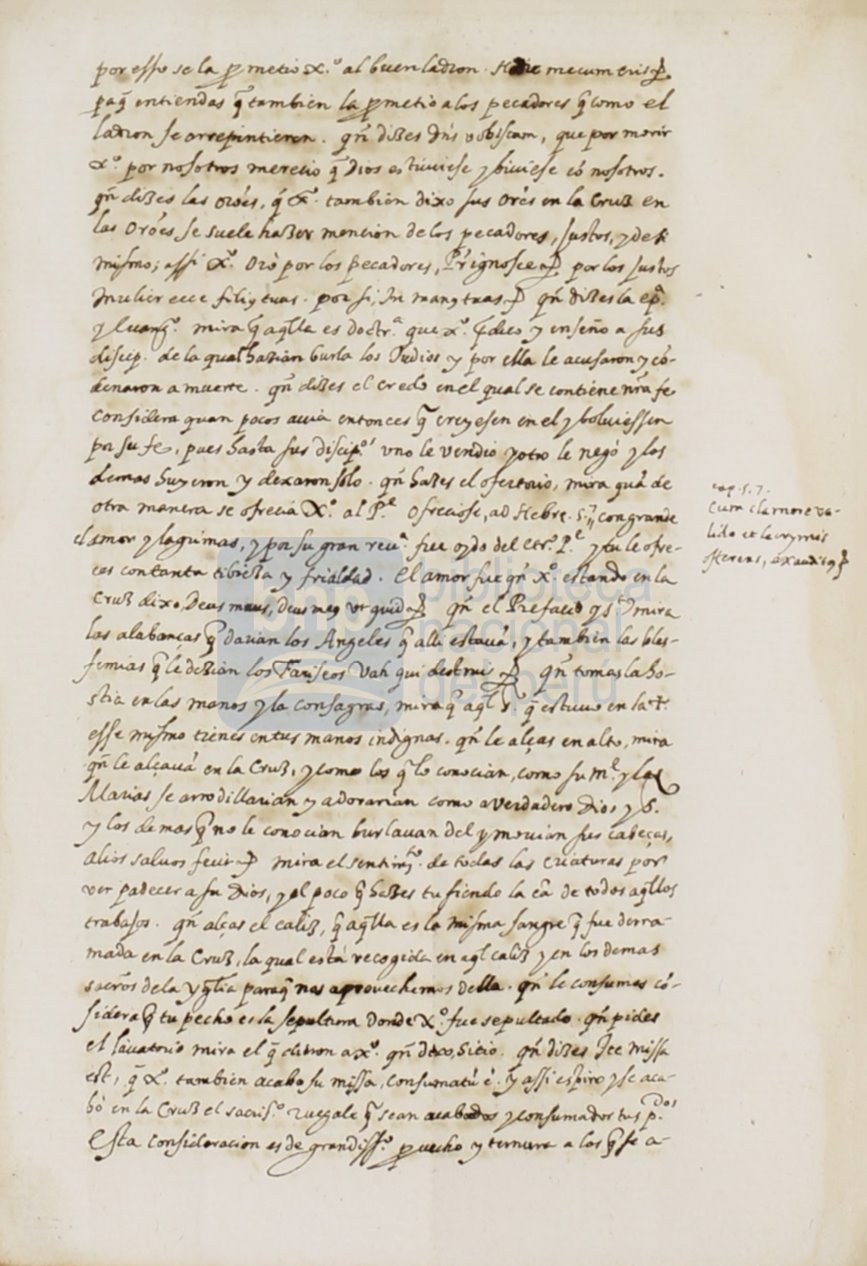 por esso se la p̱metio X.º al buen ladron. Hodie mecum eris &.
paq̃ entiendas q̃ tambien la p̱metio a los pecadores q̃ como el
ladron se arrepintieren. qñ dizes Dñs vobiscum, que por morir
X.º por nosotros merecio q̃ Dios estuuiese y biuiese cõ nosotros.
qñ dizes las orões, q̃ X.º tambien dixo sus orõs en la Cruz en
las Orões se suele hazer mencion de los pecadores, Justos, y de si
mismo; assi X.º Orò por los pecadores, Pr̃ ignosce & por los Justos
mulier ecce filiꝰ tuus. por si, In manꝰ tuas & qñ dizes la ep.ª
y euang.º mira q̃ aq̃lla es doctr.ª que X.º p̃dico y enseño a sus
discip. de la qual hazian burla los Judios y por ella le acusaron y cõ-
denaron a muerte. qñ dizes el credo en el qual se contiene nr̃a fe
considera quan pocos auia entonces q̃ creyesen en el y boluiessen
por su fe, pues hasta sus discip.ºˢ vno le vendio y otro le negó y los
demas huyeron y dexaron solo. qñ hazes el ofertorio, mira quã de
otra manera se ofrecia X.º al P.ᵉ ofreciose, ad Hebre. 5. 7, con grande
clamor y lagrimas, y por su gran reu.ª fue oydo del etr.º P.ᵉ y tu le ofre-
ces con tanta tibieza y frialdad. El amor fue qñ X.º estando en la
Cruz dixo, Deus meus, deus meꝰ vt quid & qñ el Prefacio y s.ᵗᵘˢ mira
las alabanças q̃ darian los Angeles q̃ alli estauã, y tambien las blas-
femias q̃ le dezian los Fariseos Vah qui destruis & qñ tomas la ho-
stia en las manos y la consagras, mira q̃ aq̃l S.ʳ q̃ estuuo en la †.
esse mismo tienes en tus manos indignas. qñ le alças en alto, mira
qñ le alçauã en la Cruz, y como los q̃ lo conocian, como su M.ᵉ y las
Marias se arrodillarian y adorarian como a verdadero Dios y S.
y los demas q̃ no le conocian burlauan del y mouian sus cabeças,
alios saluos fecit & mira el sentim.ᵗᵒ de todas las criaturas por
ver padecer a su Dios, y el poco q̃ hazes tu siendo la cã de todos aq̃llos
trabajos. qñ alças el caliz, q̃ aq̃lla es la misma sangre q̃ fue derra-
mada en la Cruz, la qual està recogida en aq̃l caliz y en los demas
sacr̃os de la ygl̃ia paraq̃ nos aprouechemos della. qñ le consumes cõ-
sidera q̃ tu pecho es la sepultura donde X.º fue sepultado. qñ pides
el lauatorio mira el q̃ dieron a X.º qñ dixo, Sitio. qñ dizes Ite missa
est, q̃ X.º tambien acabo su missa, consumatũ ẽ. y assi espiro y se aca-
bò en la Cruz el sacrif.º ruegale q̃ sean acabados y consumados tus p.ᵈᵒˢ
Esta consideracion es de grandiss.º p̱uecho y ternura a los q̃ se a-
cap. 5. 7.
Cum clamore va-
lido et lacrymis
offerens, exauditꝰ &
biblioteca
nacional
del perú